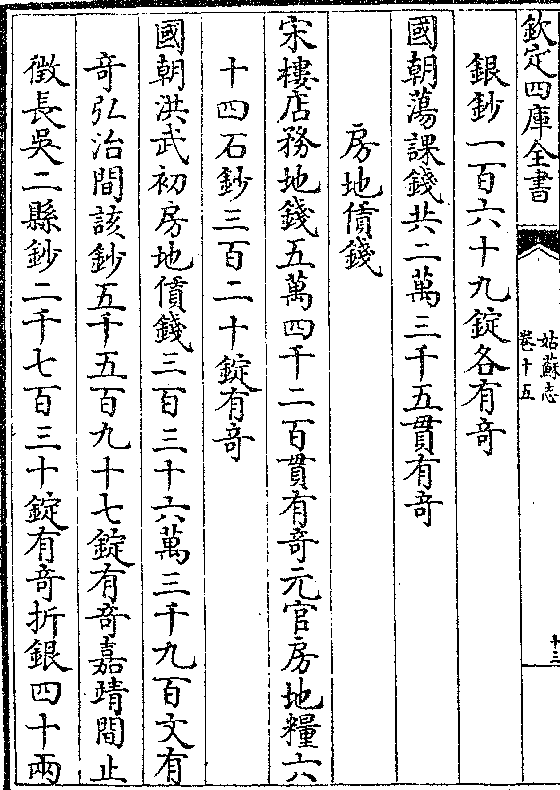 欽定四庫全書
姑蘇志
卷十五
十三
銀鈔一百六十九錠各有奇
國朝蕩課錢共二萬三千五貫有奇
房地賃錢
宋樓店務地錢五萬四千二百貫有奇元官房地糧六
十四石鈔三百二十錠有奇
國朝洪武初房地賃錢三百三十六萬三千九百文有
奇弘治間該鈔五千五百九十七錠有奇嘉靖間止
徴長吳二縣鈔二千七百三十錠有奇折銀四十兩